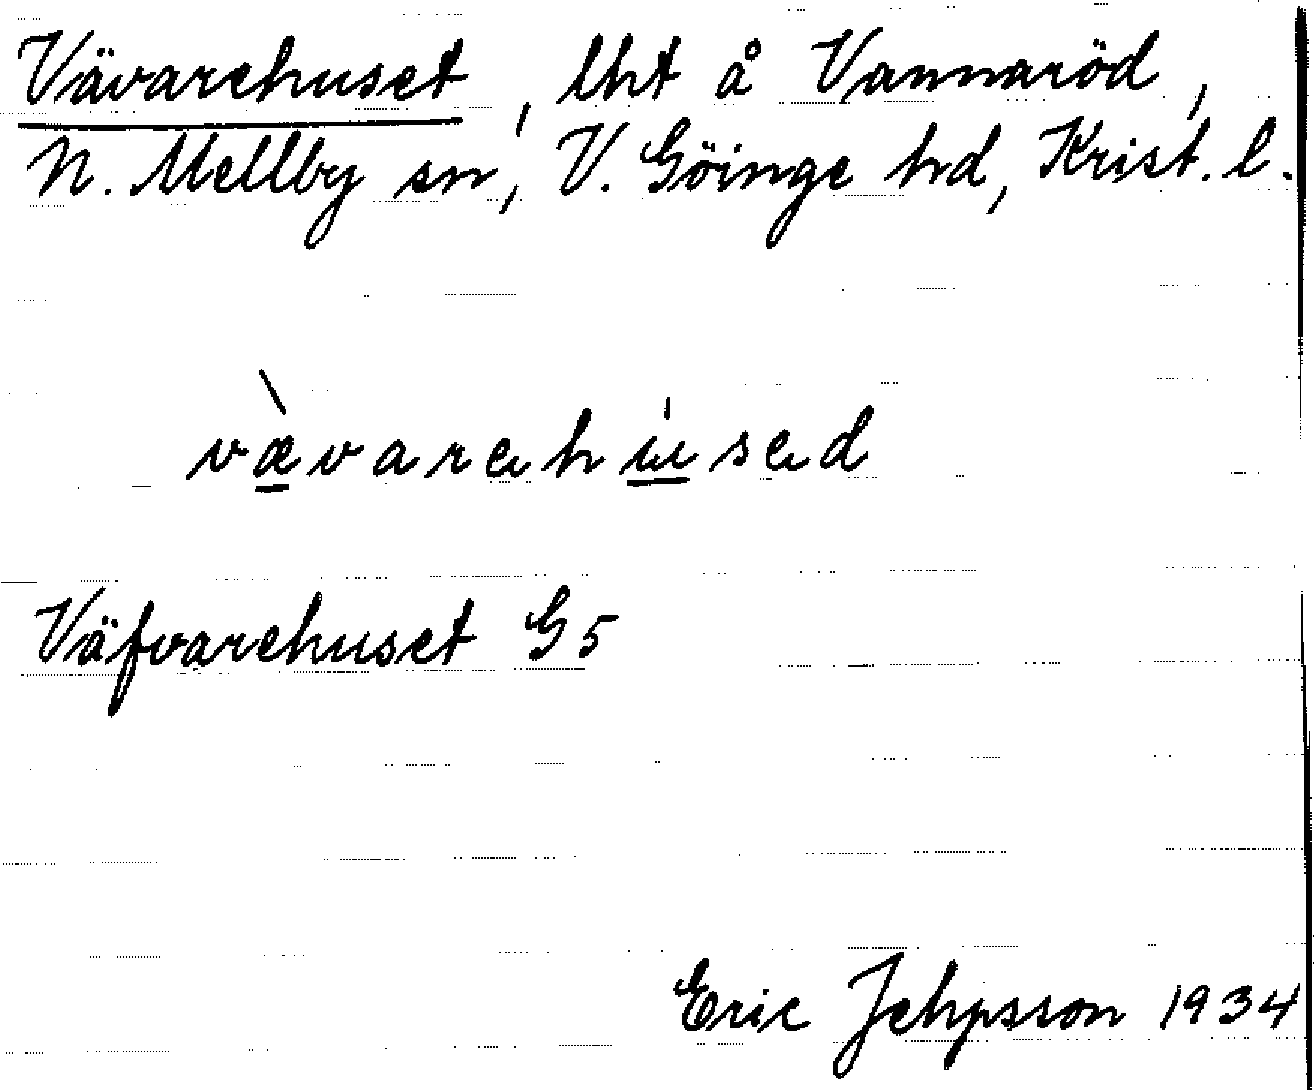 Vävarehuset, lht å Vannaröd,
N. Mellby sn, V. Göinge hd, Krist. l.
væ̀varehúsed
Väfvarehuset G5
Eric Jehpsson 1934